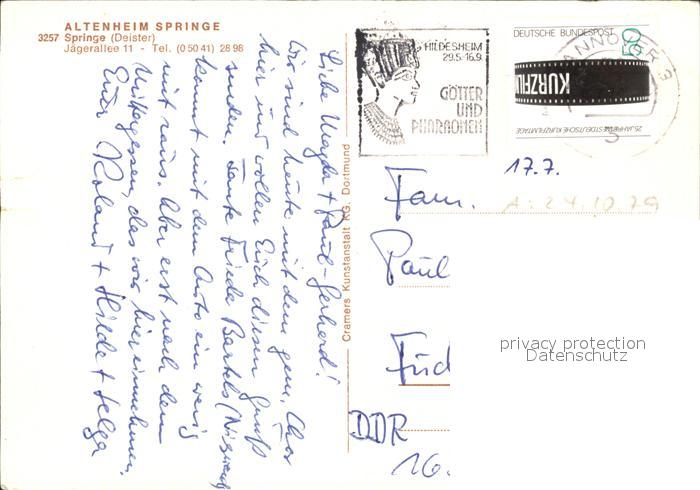 ALTENHEIM SPRINGE
3257 Springe (Deister)
Jägerallee 11 - Tel. (0 50 41) 28 98
Liebe Magda + Paul-Gerhard!
Wir sind heute mit dem gem. Chor
hier und wollen Euch diesen Gruß
senden. Tante Frieda Bartels
kommt mit dem Auto ein wenig
mit raus. Aber erst nach dem
Mittagessen, das wir hier einnehmen.
Eure Roland + Hilde + Helga
Cramers Kunstanstalt KG. Dortmund
HILDESHEIM
29.5.-16.9.
GÖTTER
UND
PHARAONEN
DEUTSCHE BUNDESPOST
50
KURZFILM
25 JAHRE WESTDEUTSCHE KURZFILMTAGE
HANNOVER 3
17.7.
A: 24.10.79
Fam.
Paul
DDR
16.
privacy protection
Datenschutz